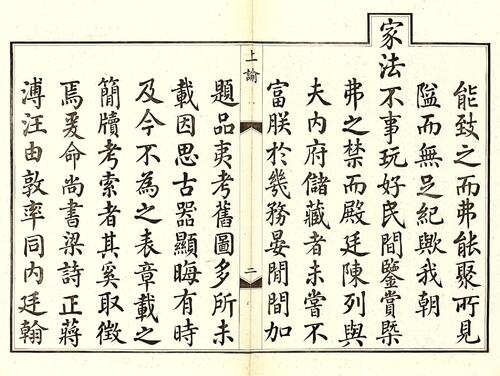 能致之而弗能聚所見
隘而無足紀歟我朝
家法不事玩好民間鑒賞槩
弗之禁而殿廷陳列與
夫內府儲藏者未嘗不
富朕於幾務晏閒間加
上諭
二
題品夷考舊圖多所未
載因思古器顯晦有時
及今不為之表章載之
簡牘考索者其奚取徵
焉爰命尚書梁詩正蔣
溥汪由敦率同內廷翰